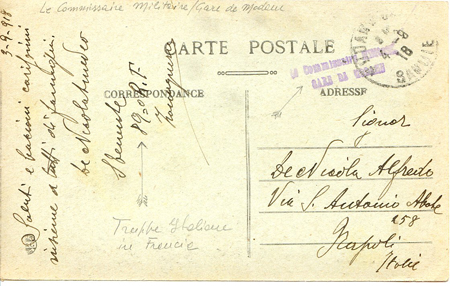 Le Commissaire Militaire/Gare de Modane
3-9-918
CARTE POSTALE
Le Commissaire
GARE DE
18
SAVOIE
CORRESPONDANCE
ADRESSE
Saluti e bacioni carissimi
insieme a tutti di famiglia
De Nicola
89º R.F.
Truppe Italiane
in Francia
Signor
De Nicola Alfredo
Via S. Antonio Abate
258
Napoli
Italie